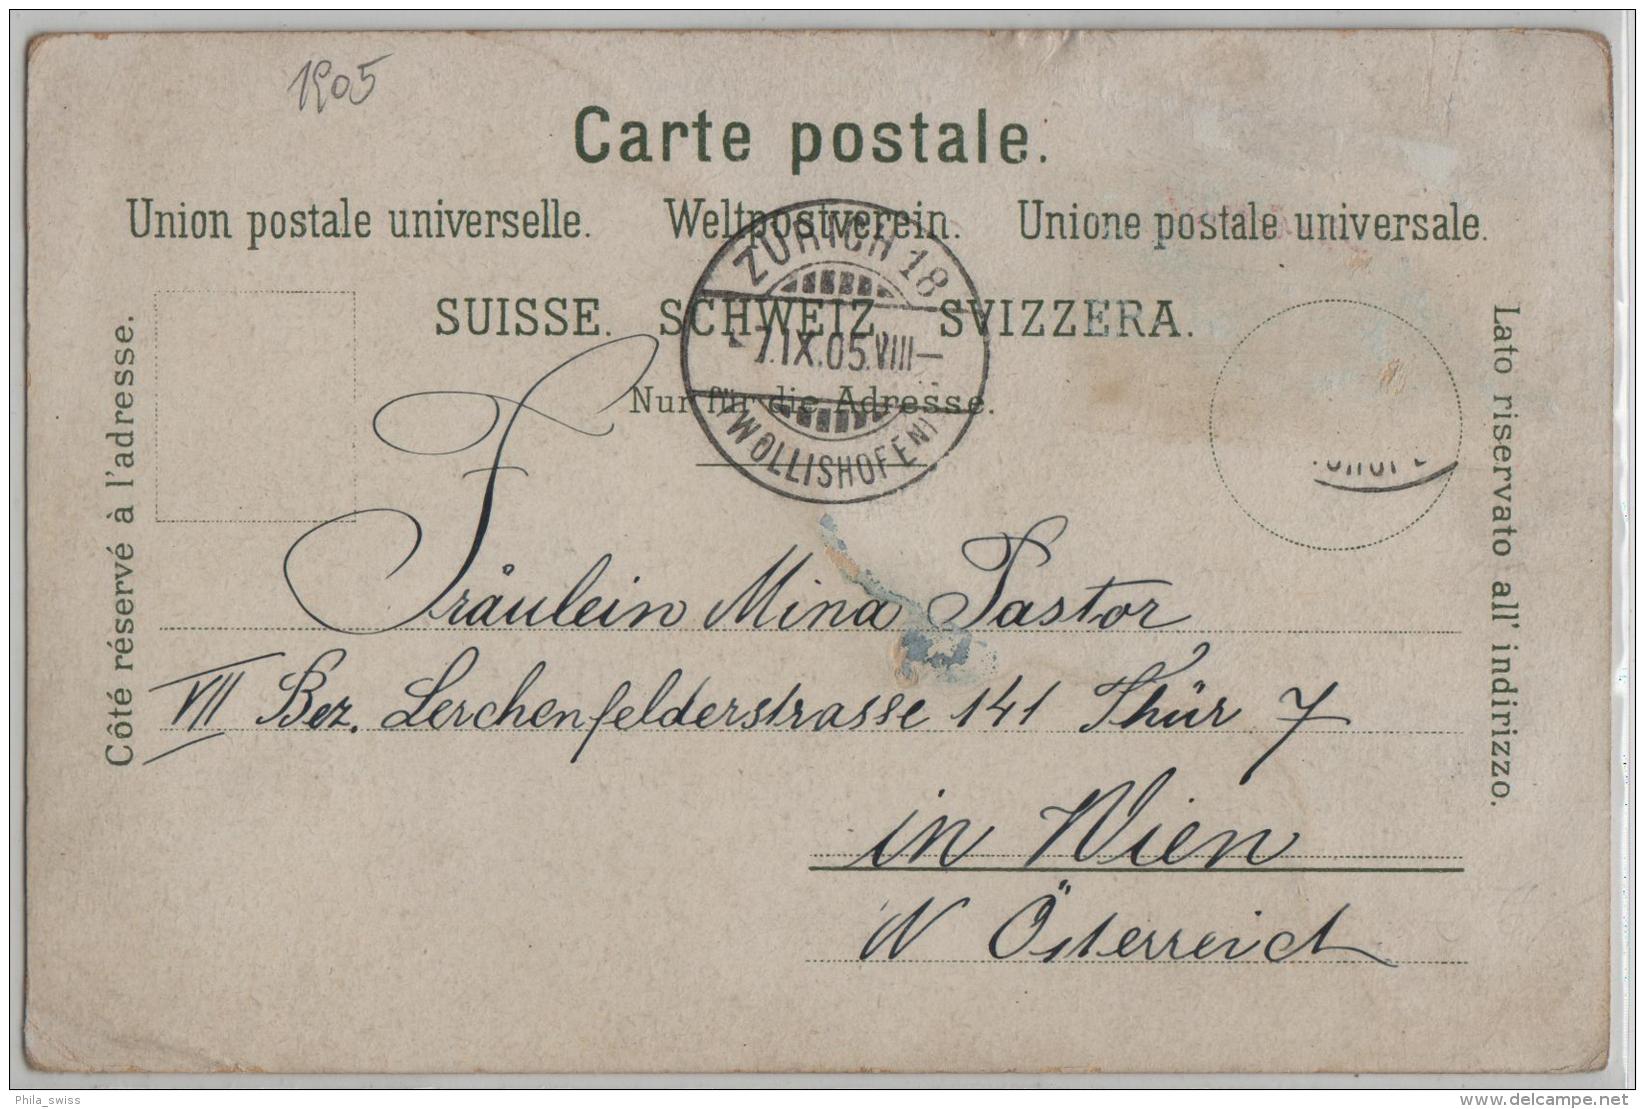 1905
Carte postale.
Union postale universelle. Weltpostverein. Unione postale universale.
SUISSE. SCHWEIZ. SVIZZERA.
Nur für die Adresse.
ZÜRICH 18
7.IX.05.VIII—
(WOLLISHOFEN)
Côté réservé à l'adresse.
Lato riservato all' indirizzo.
Fräulein Mina Pastor
VII Bez. Lerchenfelderstrasse 141 Thür 7
in Wien
N Österreich
Phila_swiss
www.delcampe.net